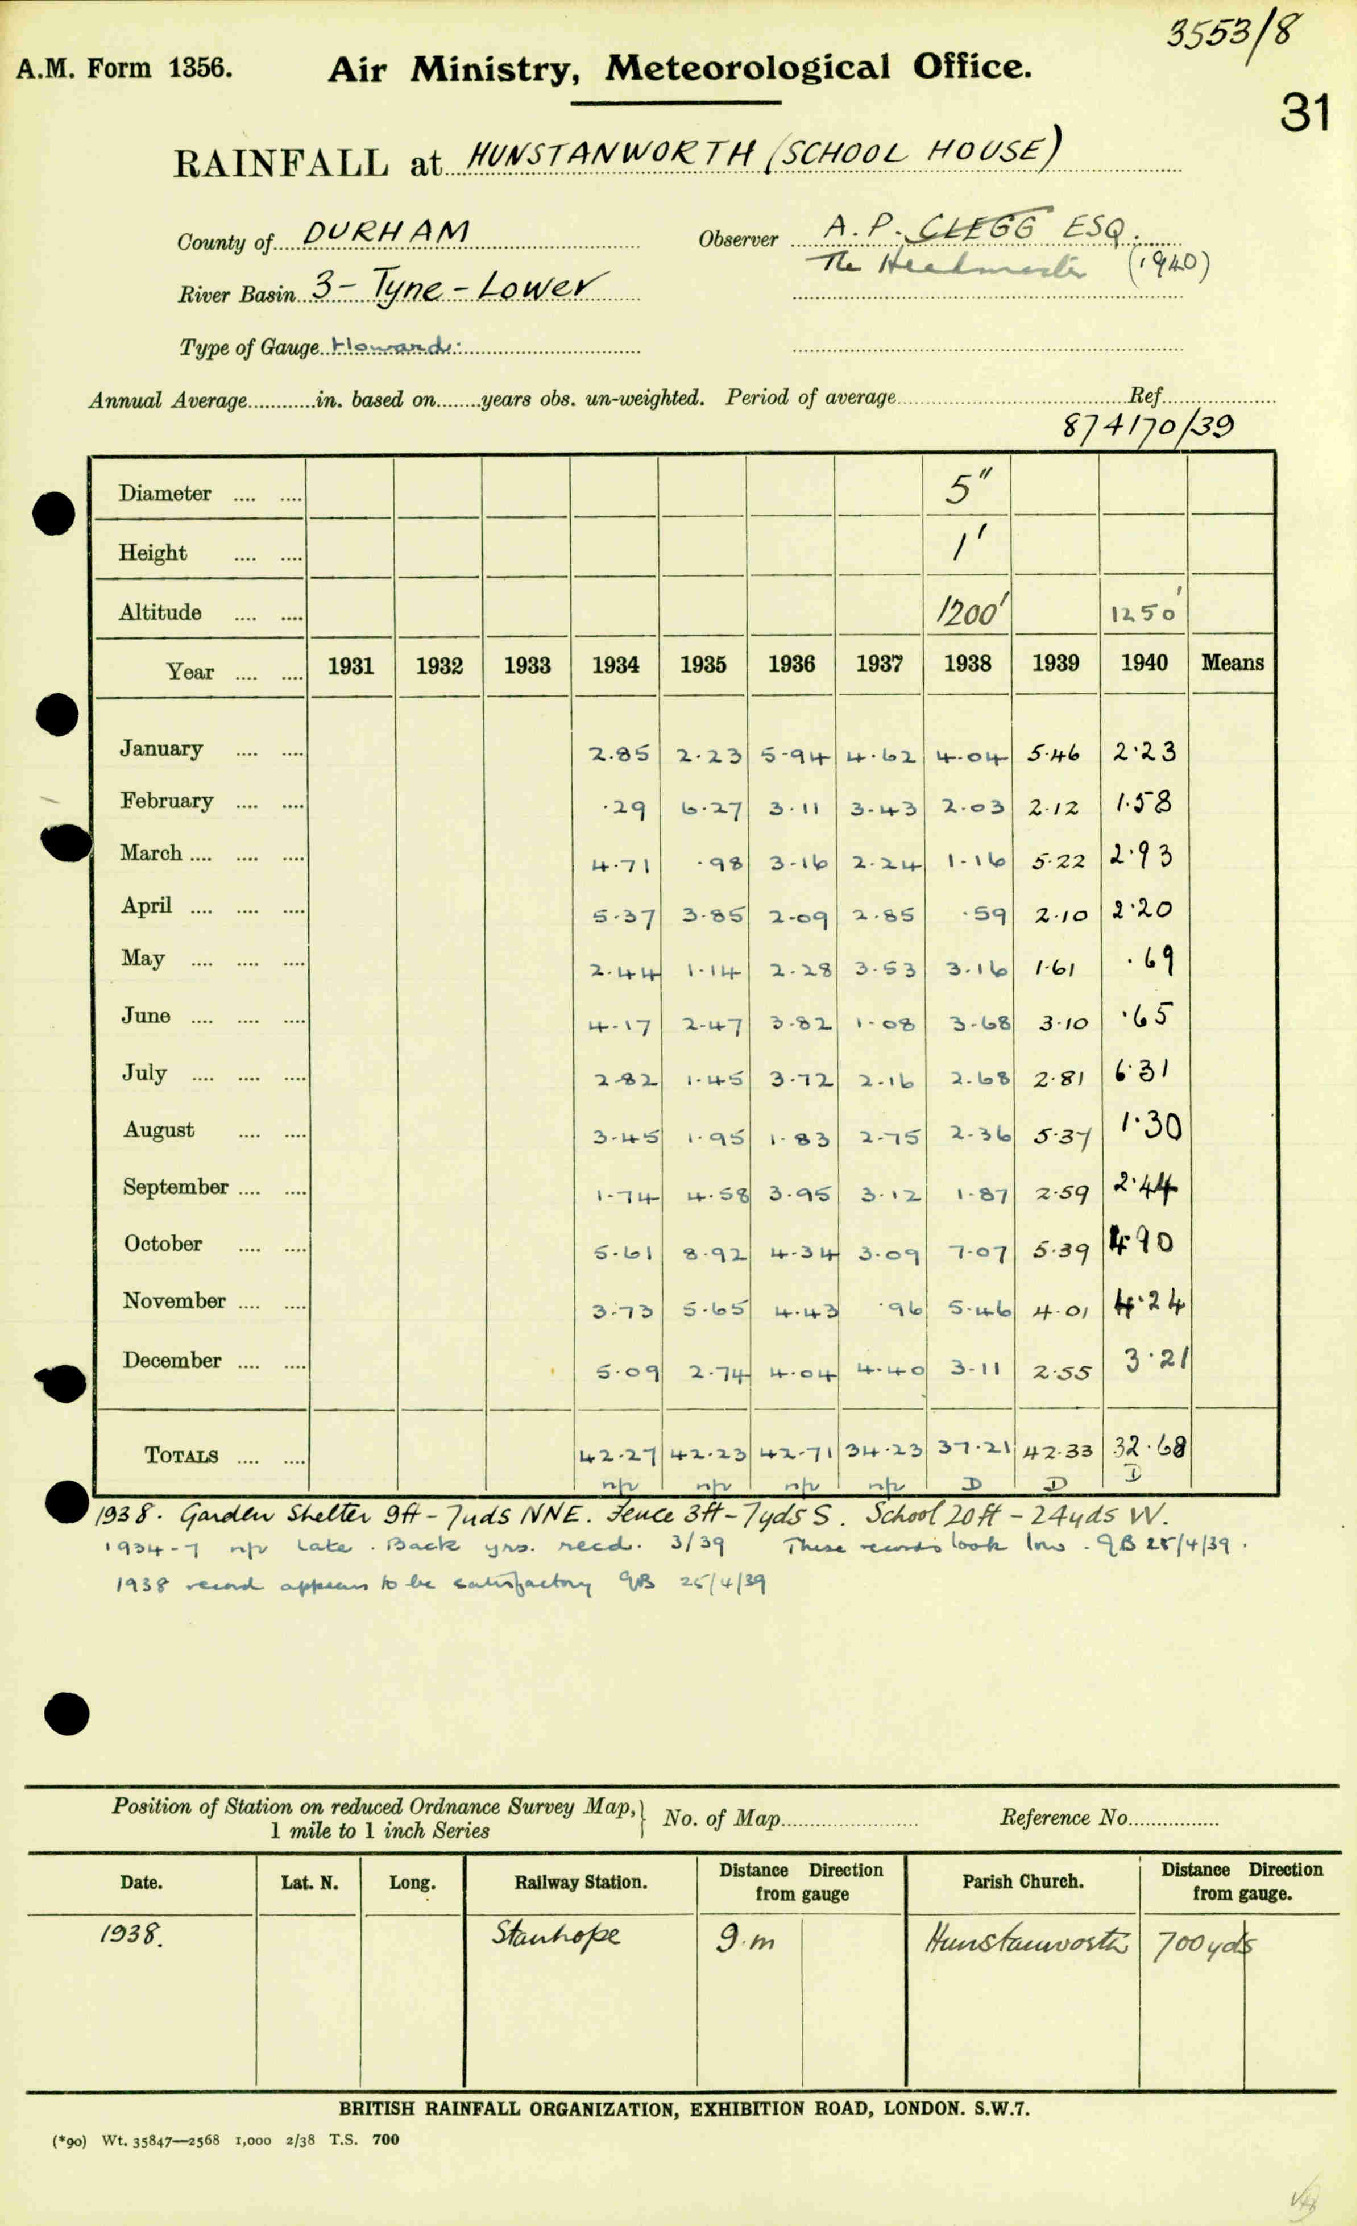 3553/8
A.M. Form 1356. Air Ministry, Meteorological Office.
31
RAINFALL at HUNSTANWORTH (SCHOOL HOUSE)
County of DURHAM Observer A. P. CLEGG ESQ.
The Headmaster (1940)
River Basin 3 - Tyne - Lower
Type of Gauge Howard.
Annual Average............in. based on........years obs. un-weighted. Period of average.................... Ref....................
874170/39
Diameter .... .... 5"
Height .... .... 1'
Altitude .... .... 1200' 1250'
Year .... .... 1931 1932 1933 1934 1935 1936 1937 1938 1939 1940 Means
January .... .... 2.85 2.23 5.94 4.62 4.04 5.46 2.23
February .... .... .29 6.27 3.11 3.43 2.03 2.12 1.58
March .... .... .... 4.71 .98 3.16 2.24 1.16 5.22 2.93
April .... .... .... 5.37 3.85 2.09 2.85 .59 2.10 2.20
May .... .... .... 2.44 1.14 2.28 3.53 3.16 1.61 .69
June .... .... .... 4.17 2.47 3.82 1.08 3.68 3.10 .65
July .... .... .... 2.82 1.45 3.72 2.16 2.68 2.81 6.31
August .... .... 3.45 1.95 1.83 2.75 2.36 5.37 1.30
September .... .... 1.74 4.58 3.95 3.12 1.87 2.59 2.44
October .... .... 5.61 8.92 4.34 3.09 7.07 5.39 4.90
November .... .... 3.73 5.65 4.43 .96 5.46 4.01 4.24
December .... .... 5.09 2.74 4.04 4.40 3.11 2.55 3.21
TOTALS .... .... 42.27 42.23 42.71 34.23 37.21 42.33 32.68
n/p n/p n/p n/p D D D
1938. Garden Shelter 9ft - 7yds NNE. Fence 3ft - 7yds S. School 20ft - 24yds W.
1934-7 n/p Late. Back yrs. recd. 3/39 These records look low. 25/4/39.
1938 record appears to be satisfactory 25/4/39
Position of Station on reduced Ordnance Survey Map,} No. of Map.................... Reference No................
1 mile to 1 inch Series
Date. Lat. N. Long. Railway Station. Distance Direction from gauge Parish Church. Distance Direction from gauge.
1938. Stanhope 9.m Hunstanworth 700yds
BRITISH RAINFALL ORGANIZATION, EXHIBITION ROAD, LONDON. S.W.7.
(*90) Wt. 35847—2568 1,000 2/38 T.S. 700